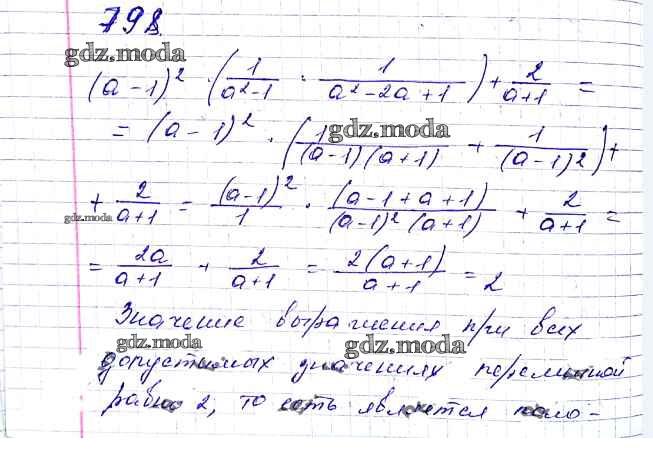 798
gdz.moda
(a-1)² · (1/(a²-1) · 1/(a²-2a+1)) + 2/(a+1) =
= (a-1)² · (1/((a-1)(a+1)) + 1/(a-1)²) +
gdz.moda
+ 2/(a+1) = (a-1)²/1 · (a-1+a+1)/((a-1)²(a+1)) + 2/(a+1) =
gdz.moda
= 2a/(a+1) + 2/(a+1) = 2(a+1)/(a+1) = 2
Значение выражения при всех
gdz.moda gdz.moda
допустимых значениях переменной
равно 2, то есть является поло-